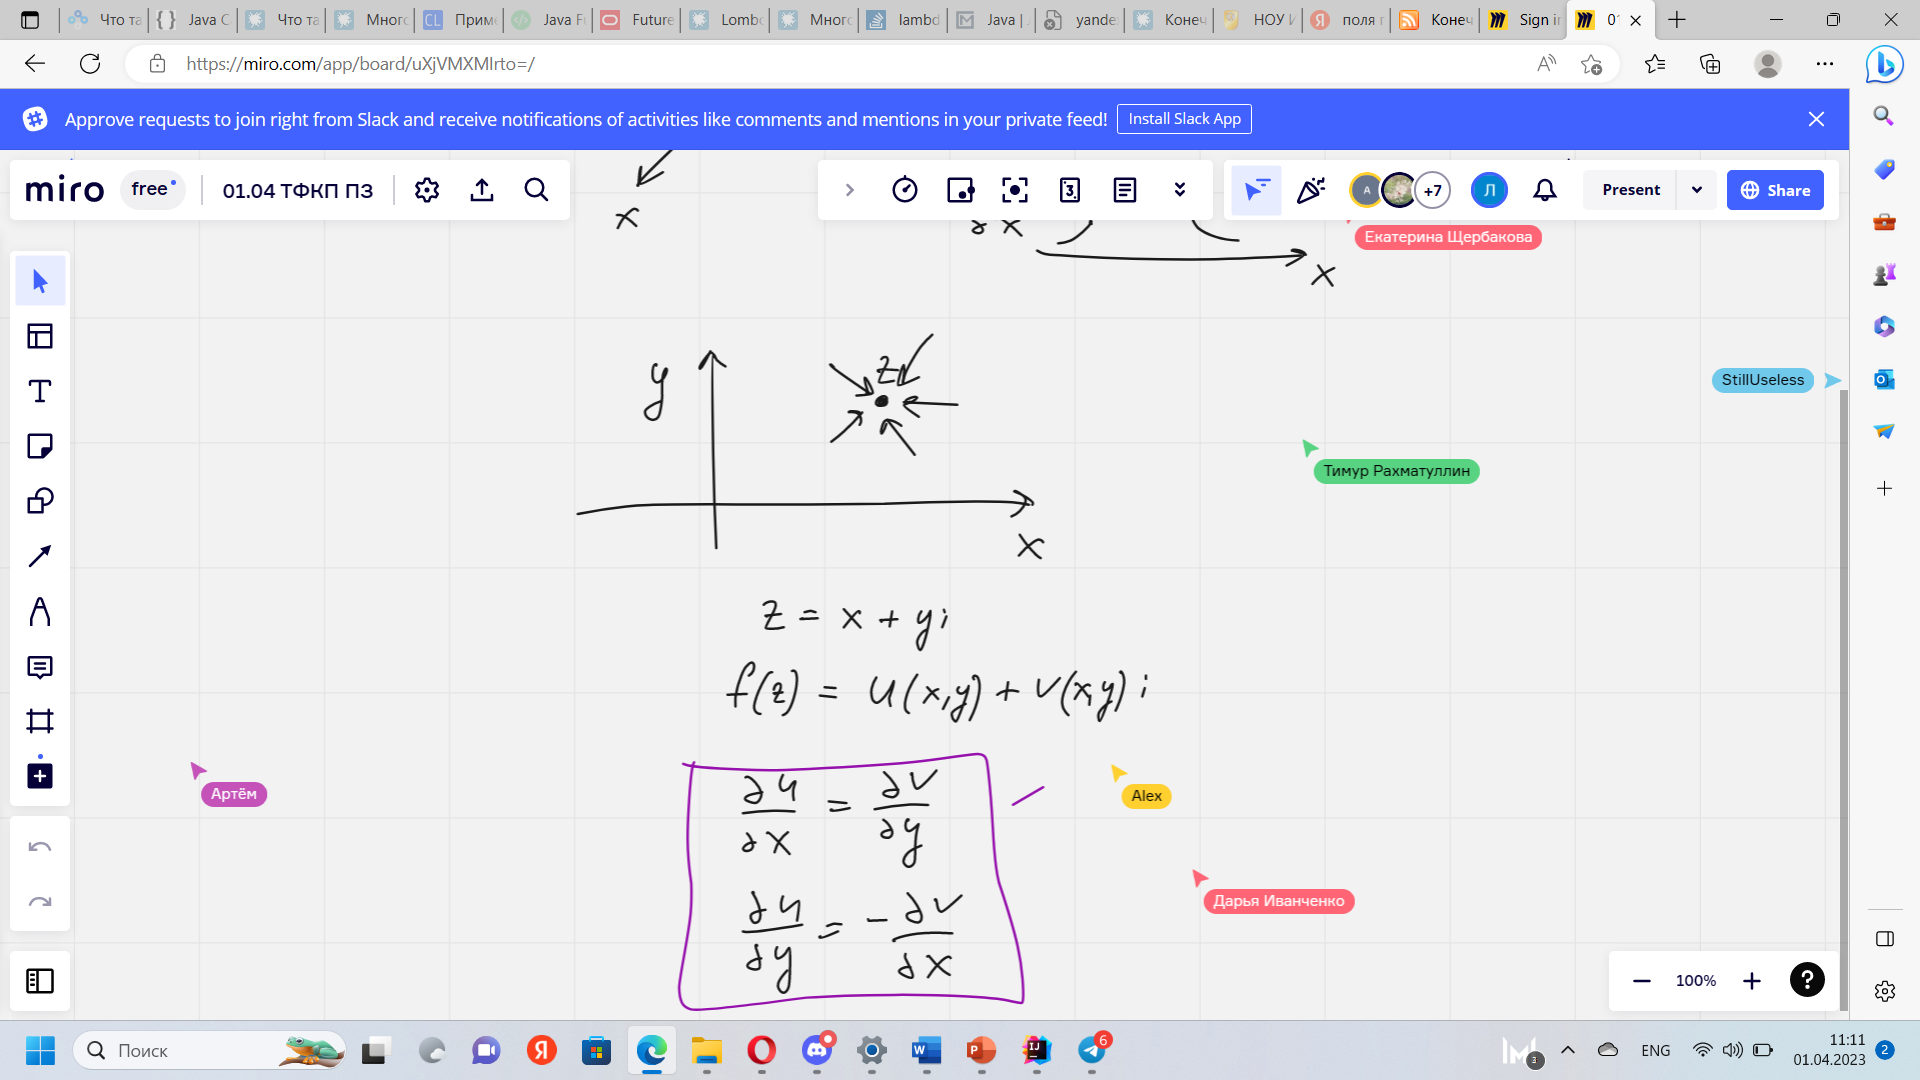 Что та
Java C
Что та
Много
CL Приме
Java Fu
Future
Lombo
Много
lambd
Java |
yande
Конеч
НОУ И
поля г
Конеч
Sign in
01
https://miro.com/app/board/uXjVMXMIrto=/
Approve requests to join right from Slack and receive notifications of activities like comments and mentions in your private feed! Install Slack App
miro free 01.04 ТФКП ПЗ
A +7 Л Present Share
x
∂x
Екатерина Щербакова
x
y
z
StillUseless
Тимур Рахматуллин
x
z = x + yi
f(z) = u(x,y) + v(x,y) i
Артём
Alex
∂u/∂x = ∂v/∂y
Дарья Иванченко
∂u/∂y = - ∂v/∂x
100%
?
Поиск
6
3
ENG
11:11
01.04.2023
2